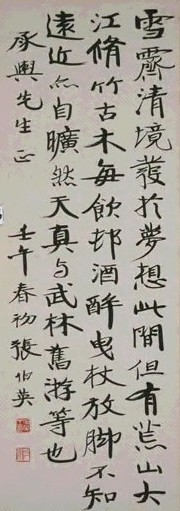 雪霽清境發於夢想此間但有荒山大
江脩竹古木每飲邨酒醉曳杖放脚不知
遠近亦自曠然天真与武林舊游等也
承輿先生正
壬午春初張伯英